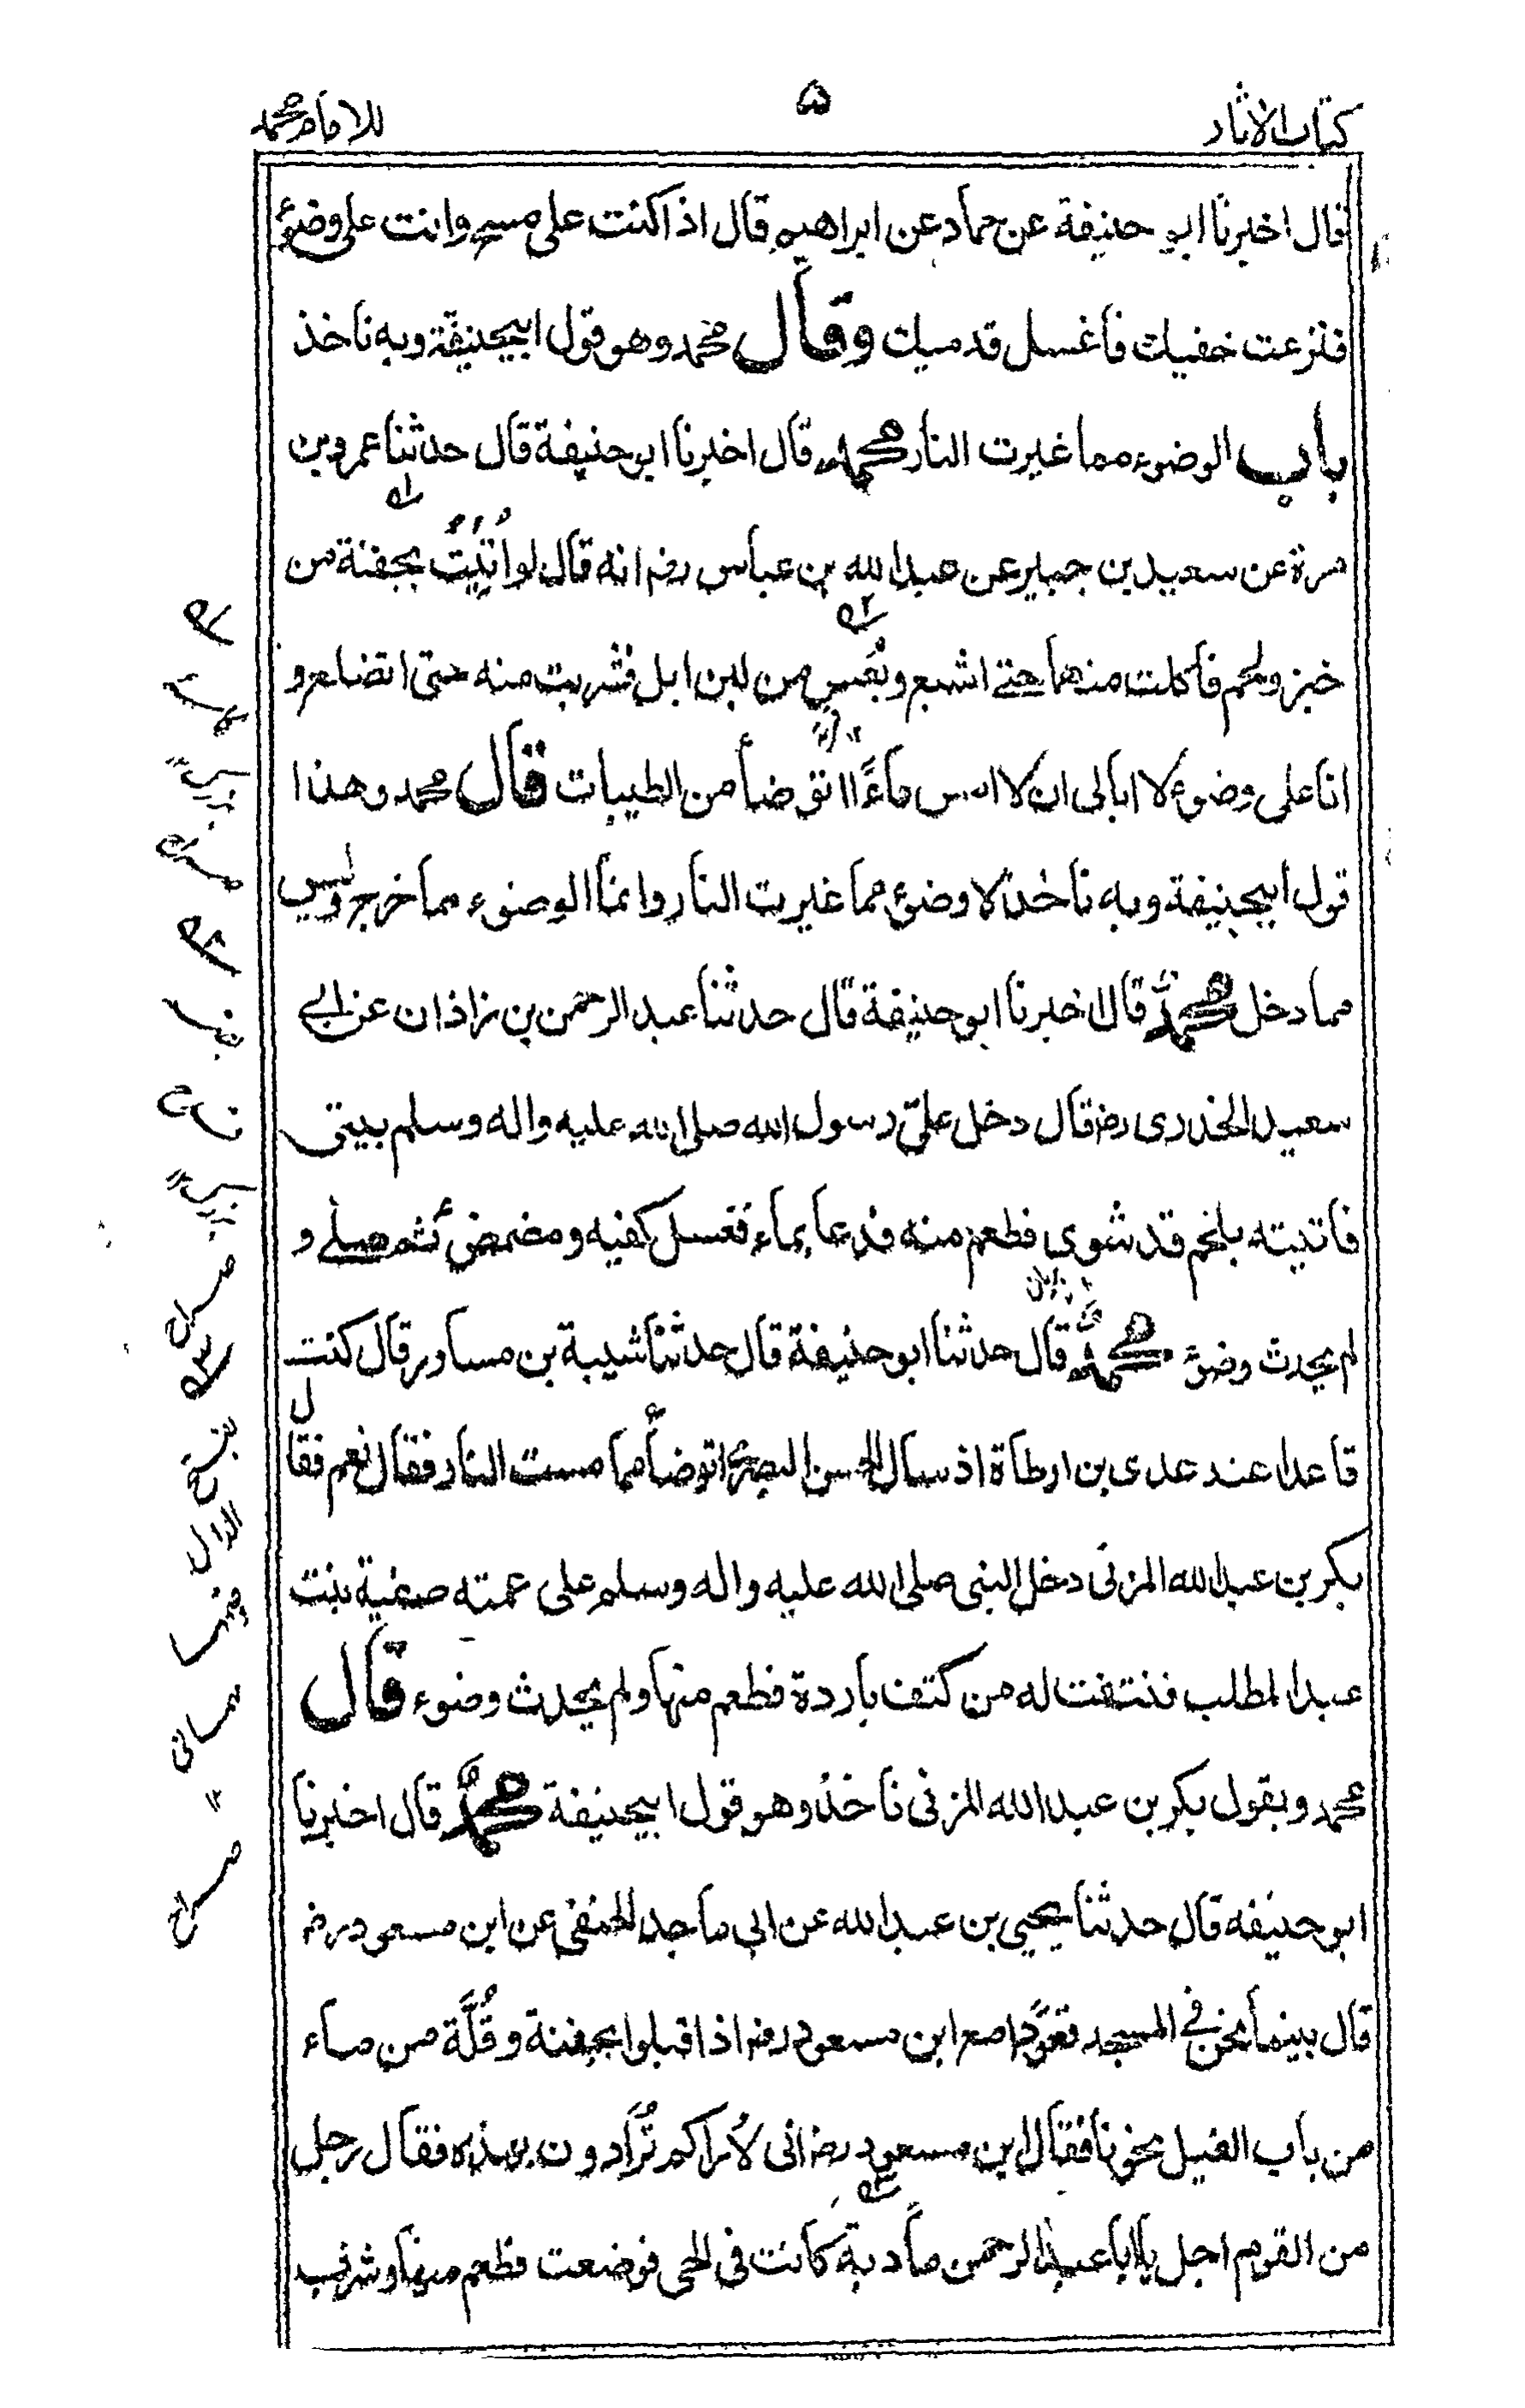 كتاب الاثار
۵
للامام محمد
قال اخبرنا ابو حنيفة عن حماد عن ابراهيم قال اذا كنت على مسح وانت على وضوئ
فنزعت خفيك فاغسل قدميك وقال محمد وهو قول ابيحنيفة وبه ناخذ
باب الوضوء مما غيرت النار محمد قال اخبرنا ابو حنيفة قال حدثنا عمرو بن
مرة عن سعيد بن جبير عن عبد الله بن عباس رض انه قال لو اُتِيتُ بجفنة من
خبز ولحم فاكلت منها حتے اشبع وبعُس من لبن ابل فشربت منه حتى اتضلع و
انا على وضوء لا ابالى ان لا امس ماءً ا اتوضأ من الطيبات قال محمد وهذا
قول ابيحنيفة وبه ناخذ لا وضوئ مما غيرت النار وانما الوضوء مما خرج وليس
مما دخل محمد قال اخبرنا ابو حنيفة قال حدثنا عبد الرحمن بن زاذان عن ابي
سعيد الخدرى رض قال دخل علىّ رسول الله صلى الله عليه واله وسلم بيتى
فاتيته بلحم قد شوى فطعم منه فدعا بماء فغسل كفيه ومضمض ثم صلے و
لم يحدث وضوءً محمد قال حدثنا ابو حنيفة قال حدثنا شيبة بن مساور قال كنت
قاعدا عند عدى بن ارطاة اذ سال الحسن البصرى اتوضأ مما مست النار فقال نعم فقال
بكر بن عبد الله المزنى دخل النبى صلى الله عليه واله وسلم على عمته صفية بنت
عبد المطلب فنتفت له من كتف باردة فطعم منها ولم يحدث وضوء قال
محمد وبقول بكر بن عبد الله المزنى ناخذ وهو قول ابيحنيفة محمد قال اخبرنا
ابو حنيفه قال حدثنا يحيى بن عبد الله عن ابى ماجد الحنفى عن ابن مسعود رض
قال بينما نحن فى المسجد قعودًا مع ابن مسعود رض اذا اقبلوا بجفنة وقُلَّة من ماء
من باب الفيل نحونا فقال ابن مسعود رض انى لأراكم تُرَادون بهذه فقال رجل
من القوم اجل يا ابا عبد الرحمن مأدبة كانت فى الحى فوضعت فطعم منها وشرب
بفتح
الدال
وضمها